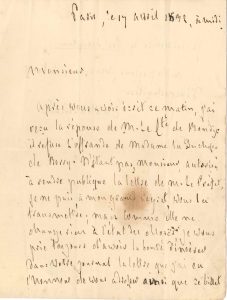 Paris, ce 17 avril 1832, à midi
Monsieur,
Après vous avoir écrit ce matin, j'ai
reçu la réponse de M. le
refuse l'offrande de Madame la Duchesse
de Berry. N'étant pas, Monsieur, autorisé
à rendre publique la lettre de M. le Préfet,
je ne puis à mon grand regret vous la
transmettre; mais comme elle ne
change rien à l'état des choses, je vous
prie toujours d'avoir la bonté d'insérer
dans votre journal la lettre que j'ai eu
l'honneur de vous adresser ainsi que ce billet